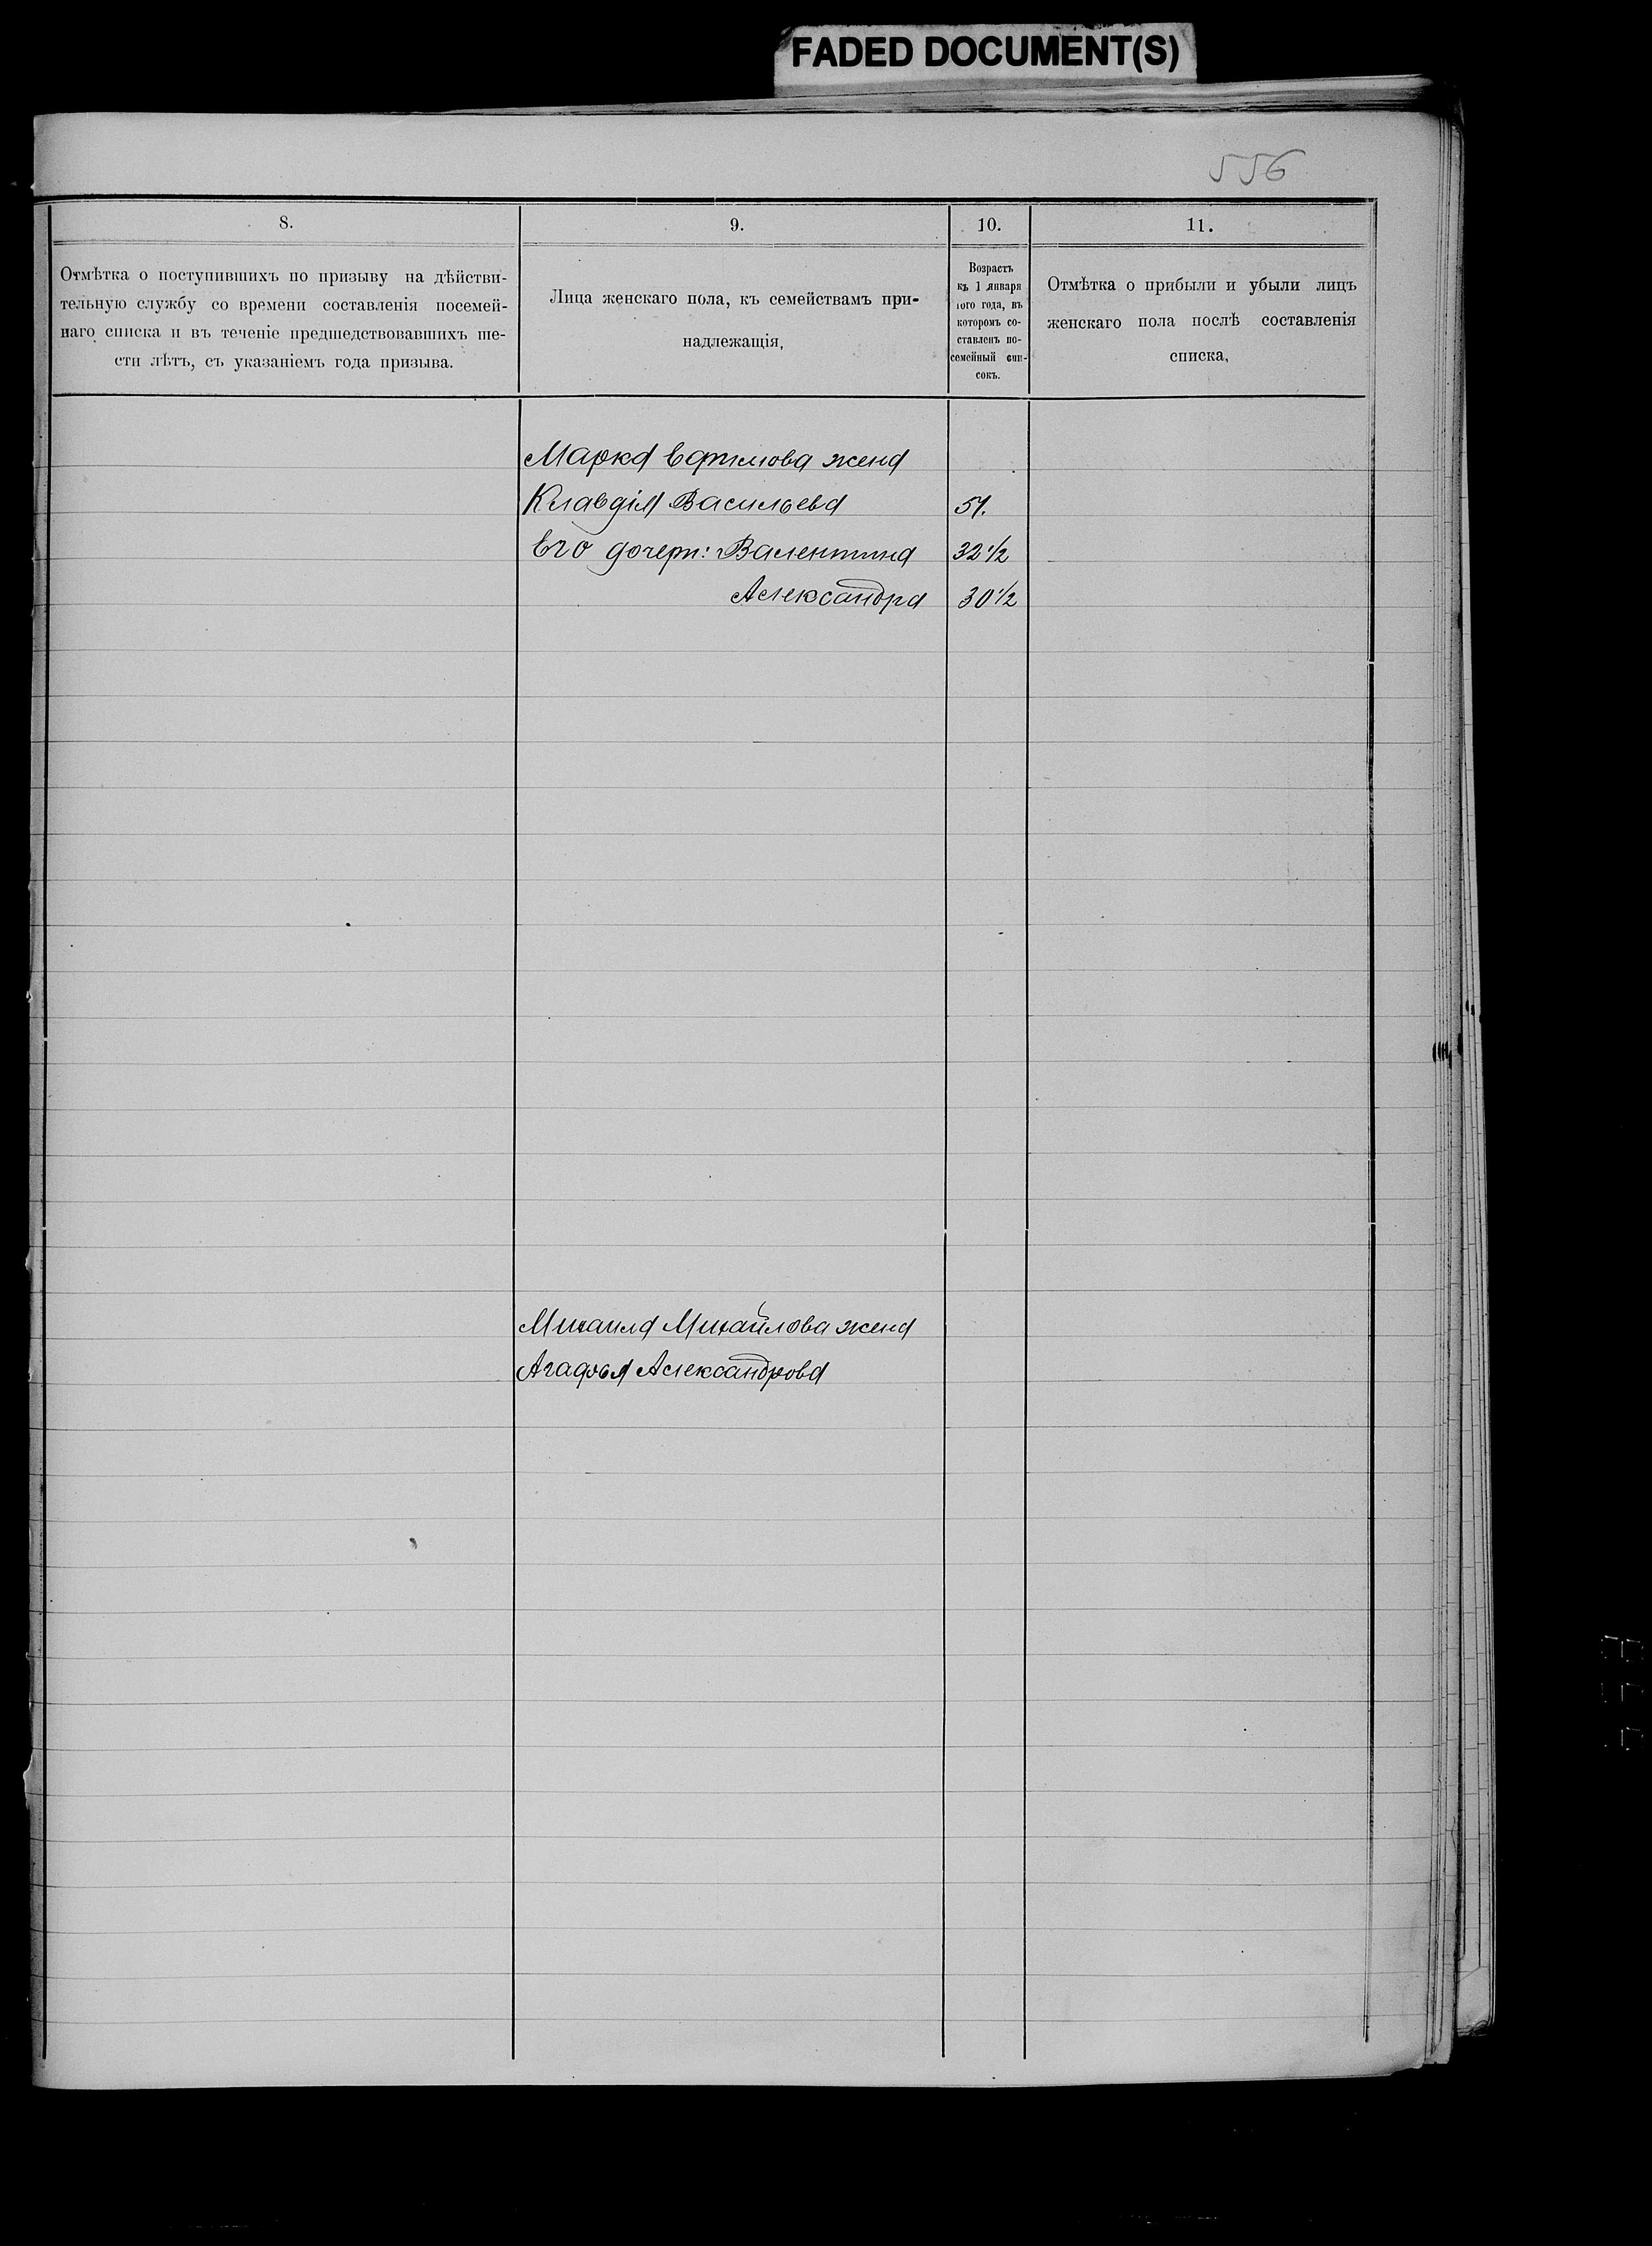 FADED DOCUMENT(S)
556
8.
9.
10.
11.
Отмѣтка о поступившихъ по призыву на дѣйстви-
тельную службу со времени составленія посемей-
наго списка и въ теченіе предшедствовавшихъ ше-
сти лѣтъ, съ указаніемъ года призыва.
Лица женскаго пола, къ семействамъ при-
надлежащія,
Возрастъ
къ 1 января
того года, въ
которомъ со-
ставленъ по-
семейный спи-
сокъ.
Отмѣтка о прибыли и убыли лицъ
женскаго пола послѣ составленія
списка,
Марка Ефимова жена
Клавдія Васильева 51.
Его дочери: Валентина 32 1/2
Александра 30 1/2
Михаила Михайлова жена
Агафья Александрова